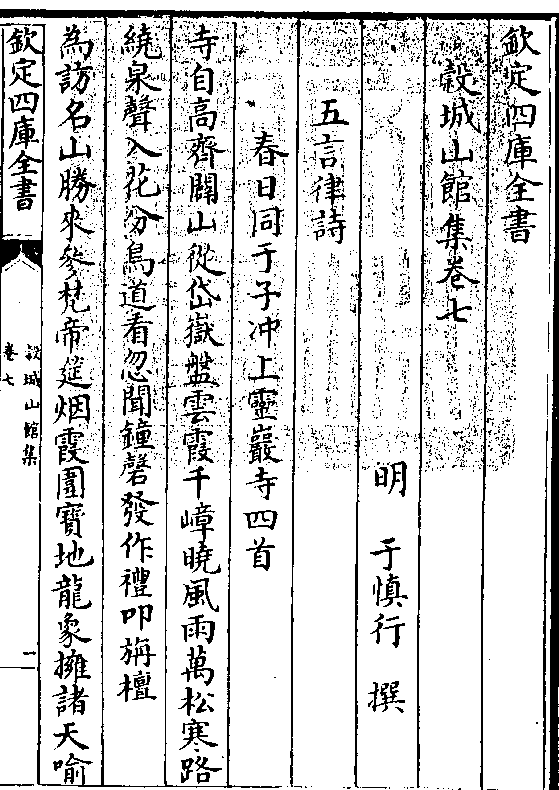 欽定四庫全書
穀城山館集卷七
明 于慎行 撰
五言律詩
春日同于子冲上靈巖寺四首
寺自高齊闢山從岱嶽盤雲霞千嶂曉風雨萬松寒路
繞泉聲入花分鳥道看忽聞鐘磬發作禮叩旃檀
為訪名山勝來參梵帝筵烟霞圍寶地龍象擁諸天喻
欽定四庫全書
穀城山館集
卷七
一